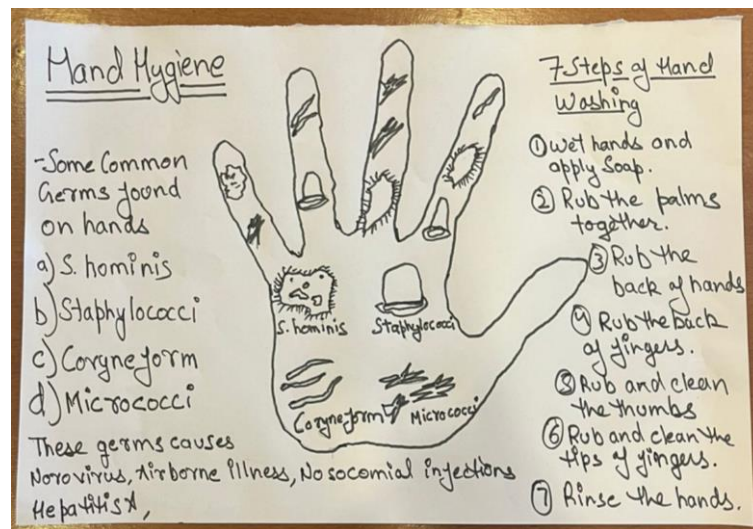 Hand Hygiene
-Some Common
Germs found
on hands
a) S. hominis
b) Staphylococci
c) Coryneform
d) Micrococci
These germs causes
Norovirus, Airborne illness, Nosocomial injections
Hepatitis A,
S. hominis
Staphylococci
Coryneform
Micrococci
7 Steps of Hand
Washing
① Wet hands and
apply Soap.
② Rub the palms
together.
③ Rub the
back of hands
④ Rub the back
of fingers.
⑤ Rub and clean
the thumbs
⑥ Rub and clean the
tips of fingers.
⑦ Rinse the hands.